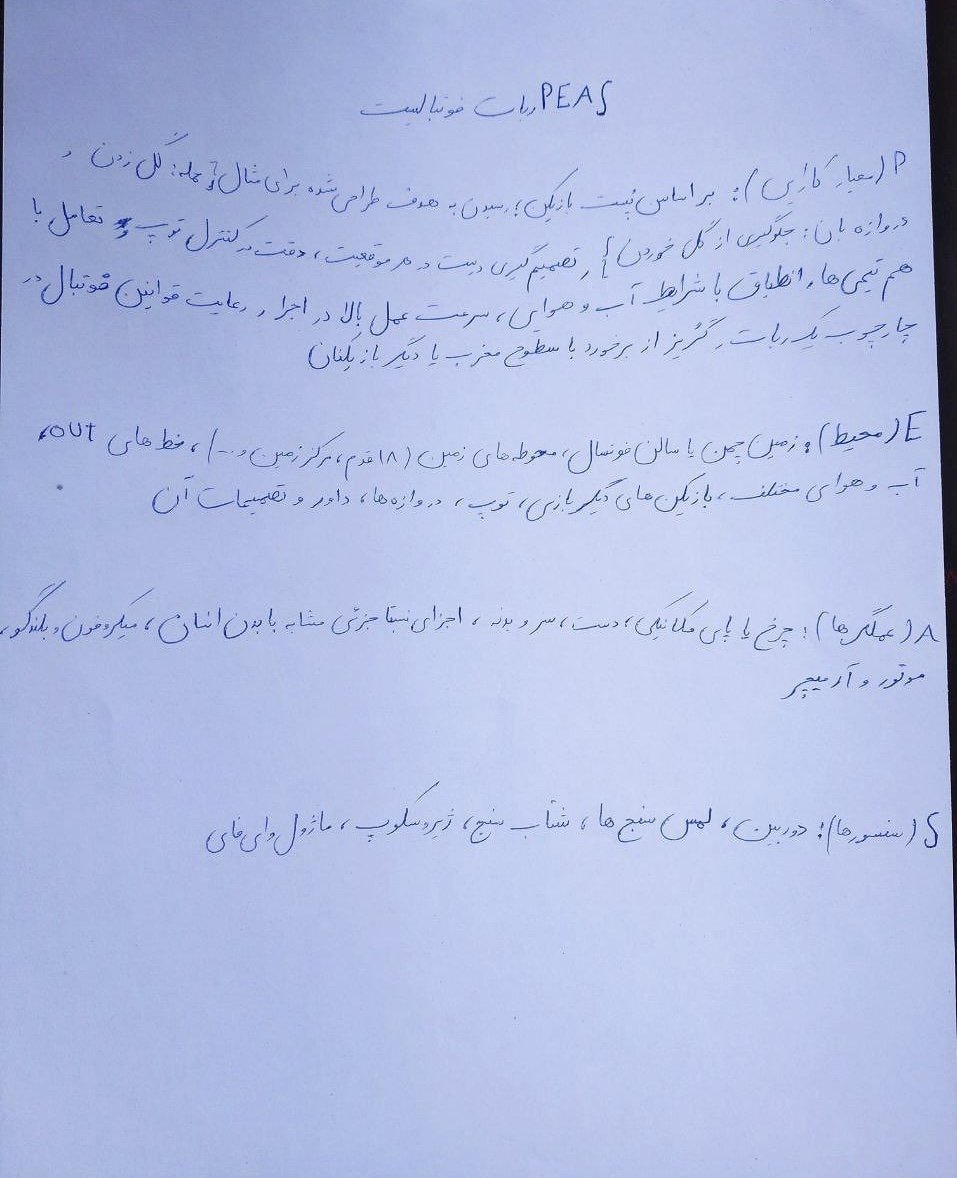 PEAS ربات فوتبالیست
P (معیار کارایی): بر اساس پُست بازیکن؛ رسیدن به هدف طراحی شده برای مثال { حمله: گل زدن و
دروازه بان: جلوگیری از گل خوردن } ، تصمیم گیری درست در هر موقعیت، دقت در کنترل توپ، تعامل با
هم تیمی ها، انطباق با شرایط آب و هوایی، سرعت عمل بالا در اجرا، رعایت قوانین فوتبال در
چارچوب یک ربات، گریز از برخورد با سطوح مخرب یا دیگر بازیکنان
E (محیط): زمین چمن یا سالن فوتسال، محوطه های زمین (۱۸ قدم، مرکز زمین و ...)، خط های out،
آب و هوای مختلف، بازیکن های دیگر بازی، توپ، دروازه ها، داور و تصمیمات آن
A (عملگرها): چرخ یا پای مکانیکی، دست، سر و بدنه، اجزای نسبتا جزئی مشابه با بدن انسان، میکروفون و بلندگو،
موتور و آرمیچر
S (سنسورها): دوربین، لمس سنج ها، شتاب سنج، ژیروسکوپ، ماژول وای فای